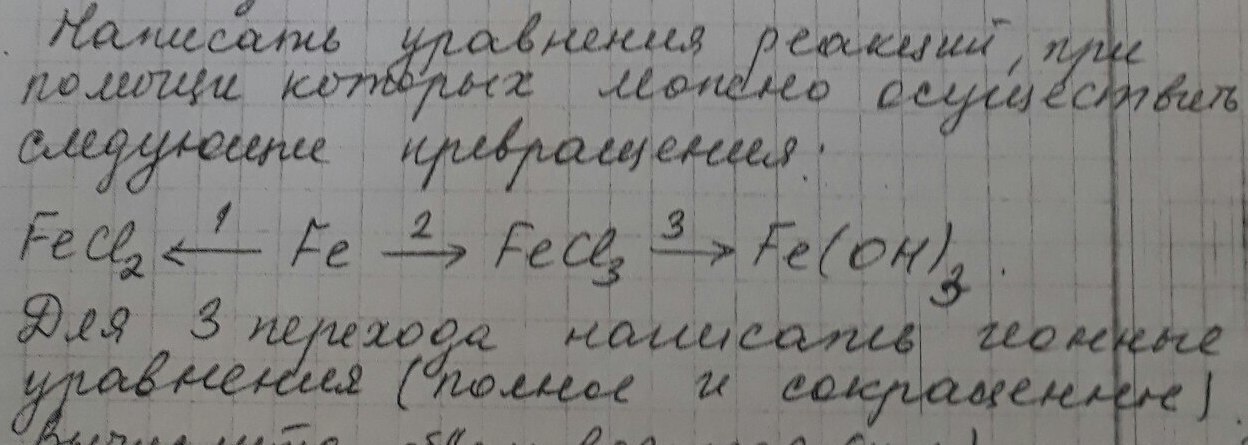 Написать уравнения реакций, при
помощи которых можно осуществить
следующие превращения:
FeCl₂ ←1 Fe →2 FeCl₃ →3 Fe(OH)₃.
Для 3 перехода написать ионные
уравнения (полное и сокращенное).